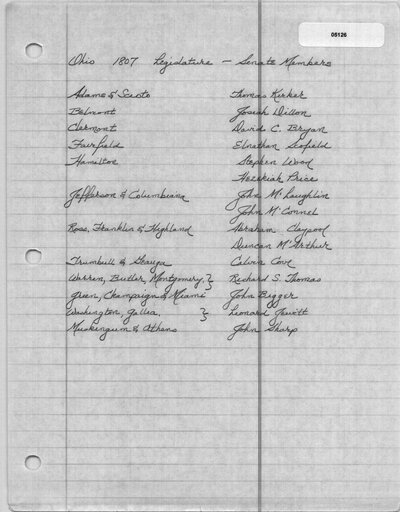 05126
Ohio 1807 Legislature - Senate Members
Adams & Scioto Thomas Kirker
Belmont Josiah Dillon
Clermont David C. Bryan
Fairfield Elnathan Scofield
Hamilton Stephen Wood
Hezekiah Price
Jefferson & Columbiana John McLaughlin
John McConnel
Ross, Franklin & Highland Abraham Claypool
Duncan McArthur
Trumbull & Geauga Calvin Cone
Warren, Butler, Montgomery } Richard S. Thomas
Green, Champaign & Miami John Bigger
Washington, Gallia. } Leonard Jewett
Muskingum & Athens John Sharp